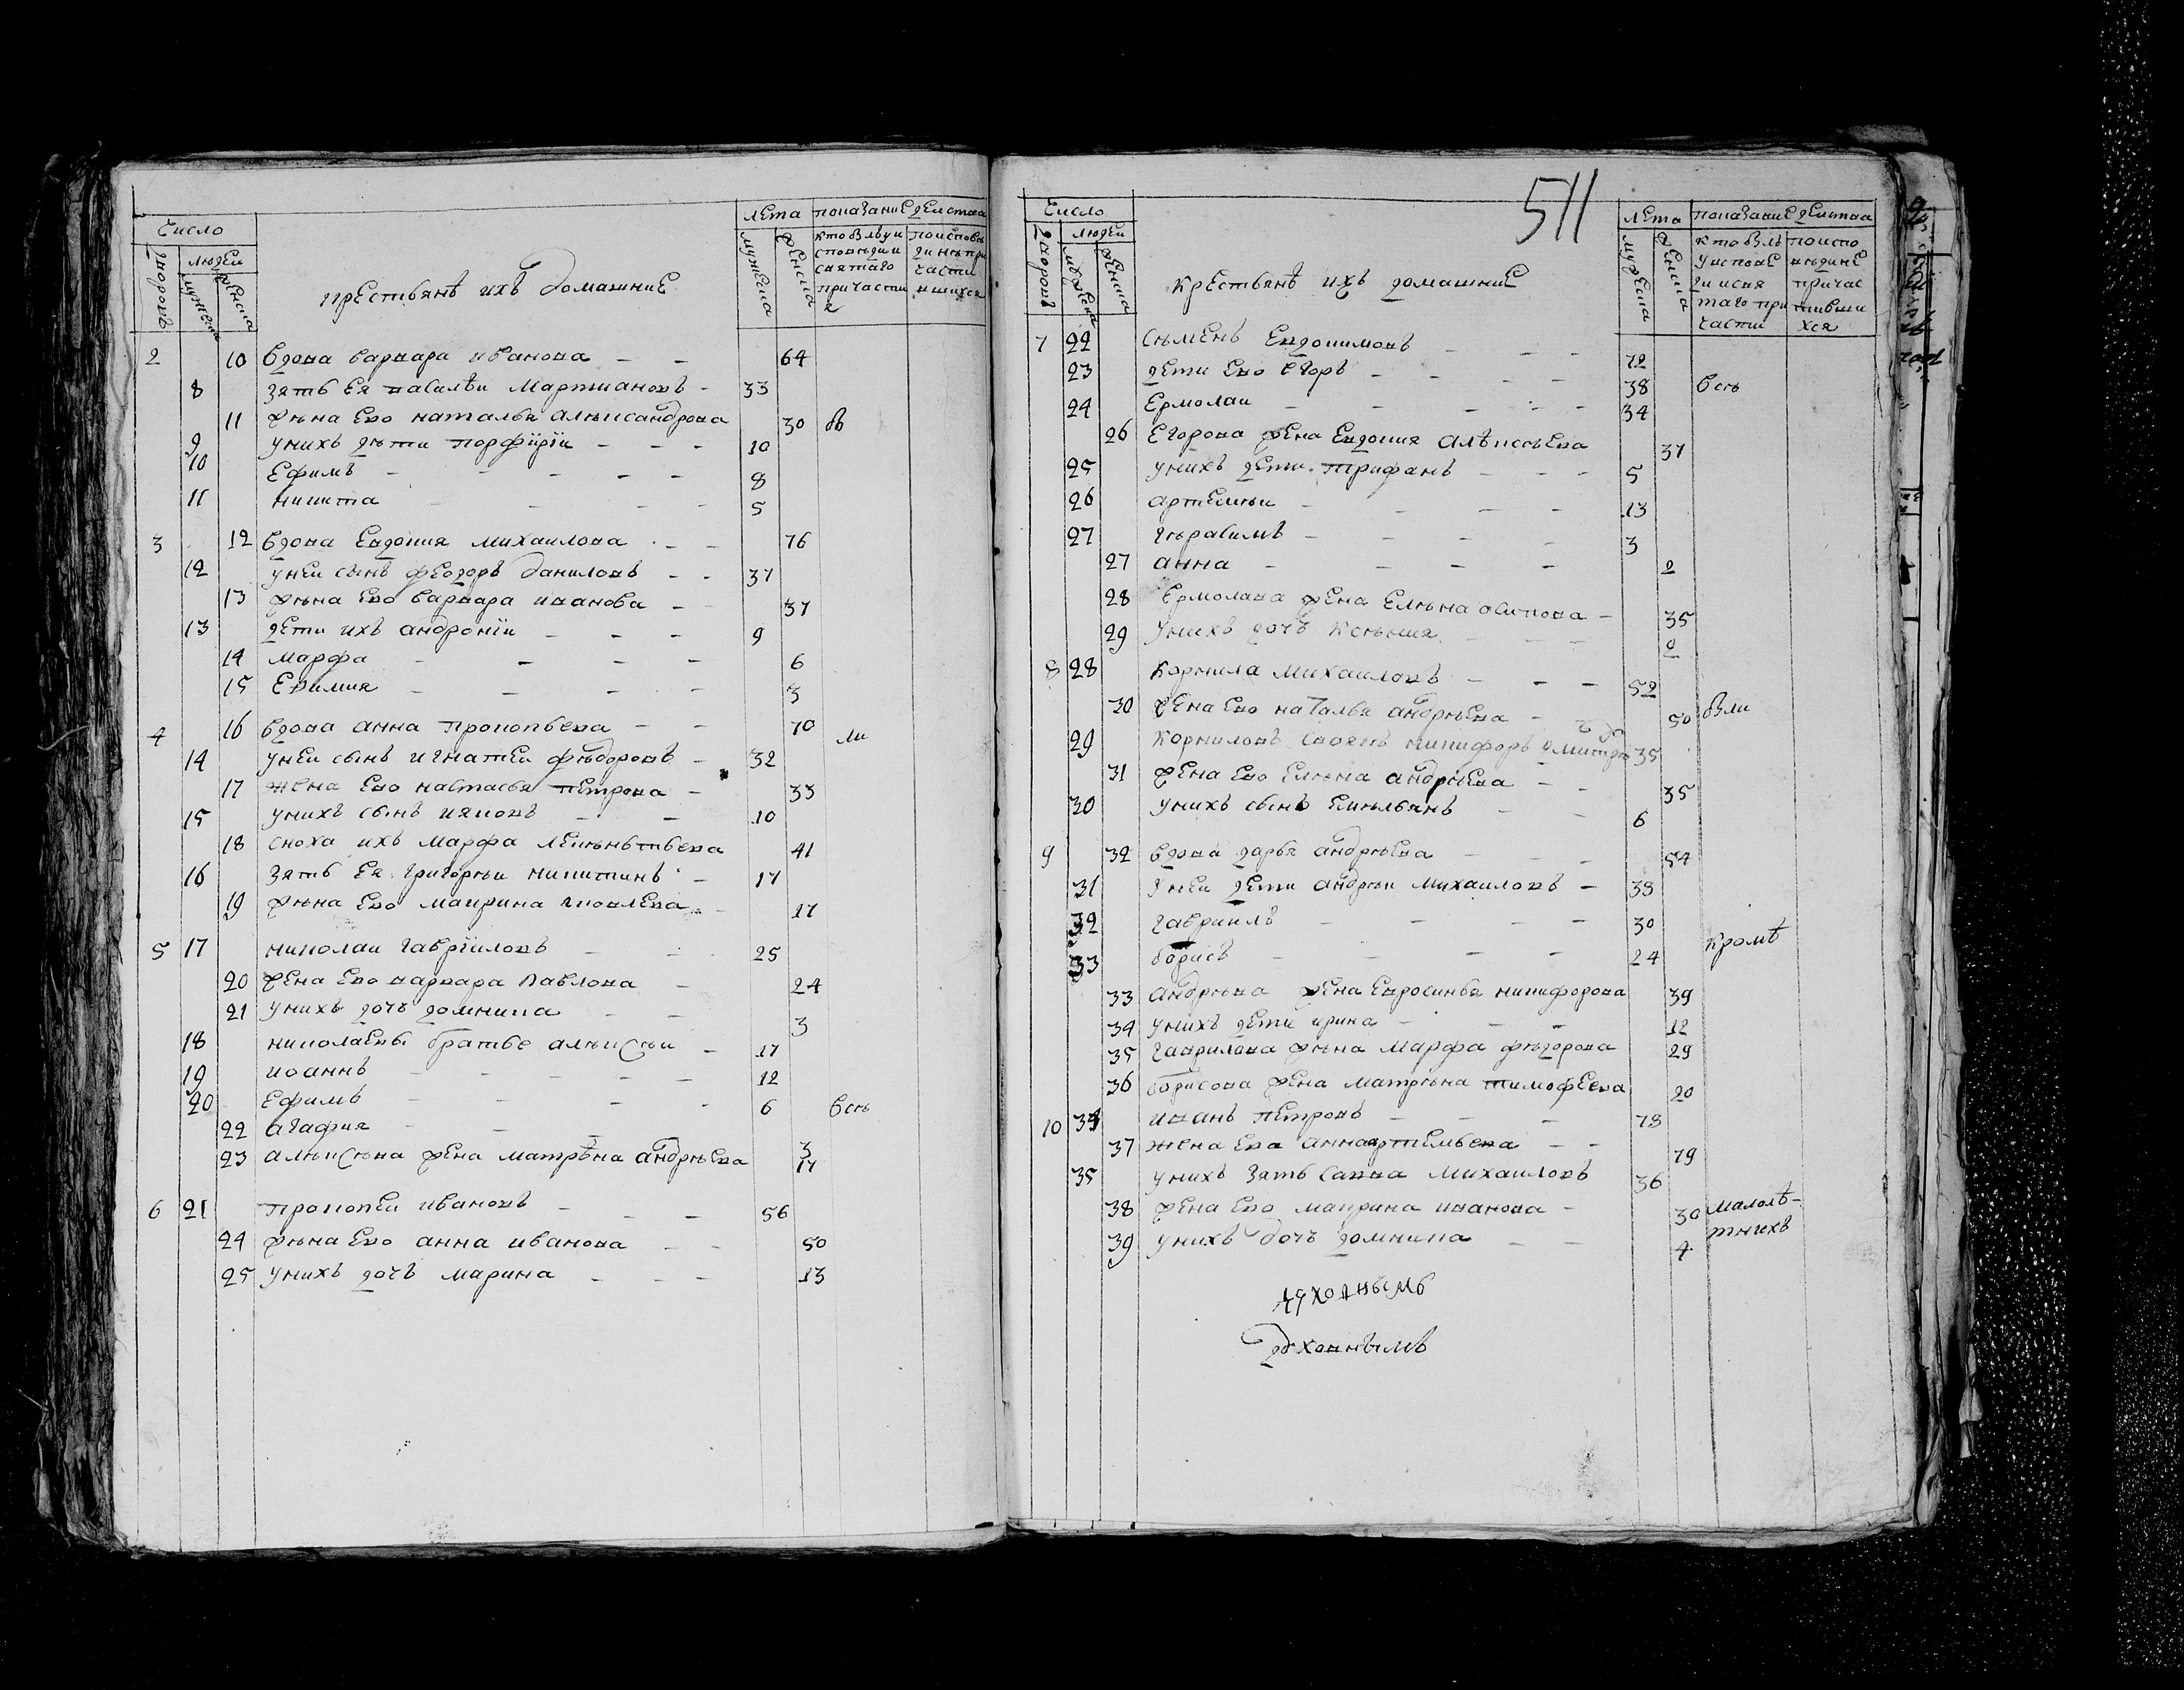 Число
дворовъ
людеи
мужеска
женска
крестьянѣ ихъ домашние
лѣта
мужеска
женска
показание деиства
кто былъ у и
споведи и
святаго
причасти
я
по исповѣ
ди не при
части
вшихся
2 10 вдова варвара иванова – – 64
8 зять Ея василѣи Мартиановъ – 33
11 жѣна Ево наталья алѣксандрова 30 бы
9 у нихъ дѣти порфѵрїи – – – 10
10 Ефимъ – – – – 8
11 никита – – – 5
3 12 вдова Евдокия михаилова – – 76
12 у неи сынъ феодоръ даниловъ – – 37
13 жѣна Ево варвара иванова – 37
13 дети ихъ андронїи – – – 9
14 марфа – – – – 6
15 Ефимия – – – – 3
4 16 вдова анна прокопьева – – 70 ли
14 у неи сынъ игнатеи фѣдоровъ – 32
17 жена Ево настасья петрова – 33
15 у нихъ сынъ иаковъ – – 10
18 сноха ихъ марфа лекѣньтьева 41
16 зять Ея григорѣи никитинъ – 17
19 жѣна Ево маврина яковлева – 17
5 17 николаи гаврїиловъ – – 25
20 жена Ево варвара Павлова – 24
21 у нихъ дочъ домника – – 3
18 николаевы братье алѣксѣи – 17
19 иоаннъ – – – – – 12
20 Ефимъ – – – – 6 всѣ
22 агафия – – – 3
23 алѣксѣва жена матрѣна андрѣева 17
6 21 прокопеи ивановъ – – – 56
24 жѣна Ево анна иванова – – 50
25 у нихъ дочъ марина – – – 13
511
Число
дворовъ
людеи
мужеска
женска
крестьянѣ ихъ домашние
лѣта
мужеска
женска
показание деиства
кто былъ
у испове
ди и свя
таго при
части
по испо
вѣдине
причас
тивши
хся
7 22 Сѣменъ Евдокимовъ – – – 72
23 дети Ево Егоръ – – – – 38 всѣ
24 Ермолаи – – – – – 34
26 Егорова жена Евдокия алѣксѣева 37
25 у нихъ дети трифанъ – – – 5
26 артемѣи – – – – 13
27 гѣрасимъ – – – – 3
27 анна – – – – 2
28 Ермолава жена Елѣна осипова – 35
29 у нихъ дочъ Ксѣния – – – 2
8 28 Корнила Михаиловъ – – – 52
30 жена Ево наталья андрѣева – 50 были
29 Корниловъ своякъ никифоръ дмитрѣ 35
31 жена Ево елѣна андрѣева – – 35
30 у нихъ сынъ емѣльянъ – – 6
9 32 вдова дарья андрѣева – – – 54
31 у неи дети андрѣи михаиловъ – 39
32 гавриилъ – – – – 30
33 борисъ – – – – 24 Кромѣ
33 андрѣва жена Евросинья никифорова 39
34 у нихъ дети ирина – – – 12
35 гаврилава жѣна марфа фѣдорова 29
36 борисова жена матрѣна тимофеева 20
10 34 иванъ петровъ – – – 78
37 жена Ева анна артемьева – – 79
35 у нихъ зять савва михаиловъ 36
38 жена Ево маврина иванова – 30 малолѣ-
39 у нихъ дочъ домника – – 4 тнихъ
духовнымъ
духовнымъ